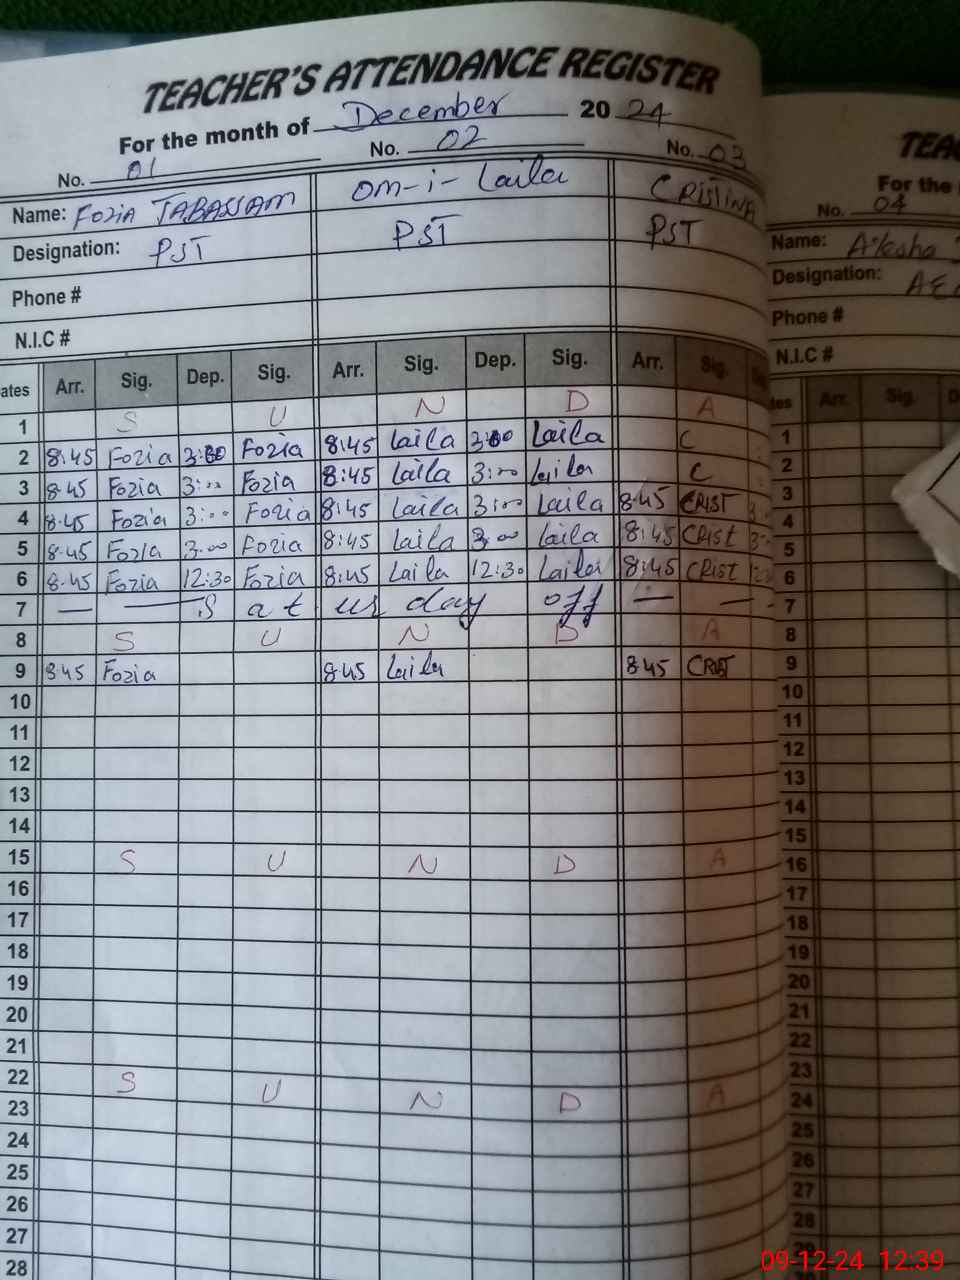 TEACHER'S ATTENDANCE REGISTER
For the month of December 20 24
No. 01 No. 02 No. 03
Name: Fozia TABASSAM om-i-Laila CRISTINA
Designation: PST PST PST
Phone #
N.I.C #
ates Arr. Sig. Dep. Sig. Arr. Sig. Dep. Sig. Arr. Sig.
1 S U N D A
2 8:45 Fozia 3:00 Fozia 8:45 Laila 3:00 Laila C
3 8:45 Fozia 3:00 Fozia 8:45 Laila 3:00 Laila C
4 8:45 Fozia 3:00 Fozia 8:45 Laila 3:00 Laila 8:45 CRIST
5 8:45 Fozia 3:00 Fozia 8:45 Laila 3:00 Laila 8:45 CRIST
6 8:45 Fozia 12:30 Fozia 8:45 Laila 12:30 Laila 8:45 CRIST
7 — — S a t ur day off — —
8 S U N D A
9 8:45 Fozia 8:45 Laila 8:45 CRIST
10
11
12
13
14
15 S U N D A
16
17
18
19
20
21
22 S U N D A
23
24
25
26
27
28
TEA
For the
No. 04
Name: Aksha
Designation:
Phone #
N.I.C #
tes Arr. Sig. D
1
2
3
4
5
6
7
8
9
10
11
12
13
14
15
16
17
18
19
20
21
22
23
24
25
26
27
28
29
09-12-24 12:39